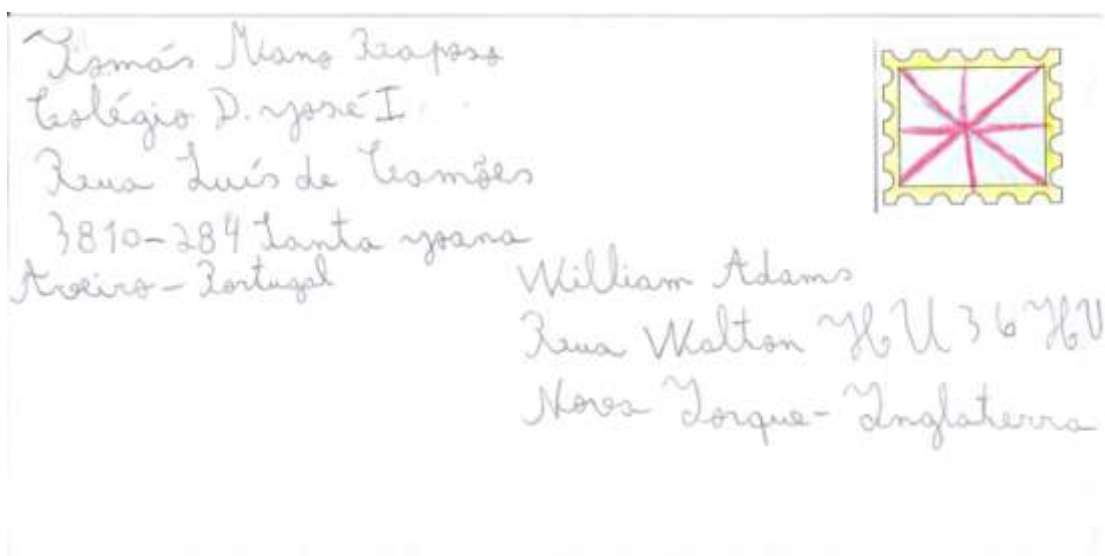 Tomás Nano Raposo
Colégio D. José I
Rua Luís de Camões
3810-284 Santa Joana
Aveiro - Portugal
William Adams
Rua Walton HU36HU
Nova Iorque - Inglaterra